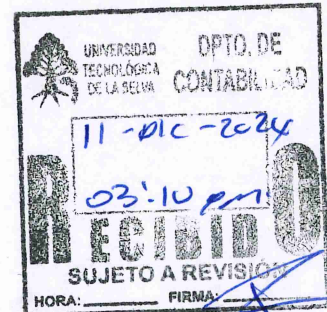 UNIVERSIDAD
TECNOLÓGICA
DE LA SELVA
DPTO. DE
CONTABILIDAD
11 - DIC - 2024
03:10 pm
RECIBIDO
SUJETO A REVISIÓN
HORA: FIRMA: